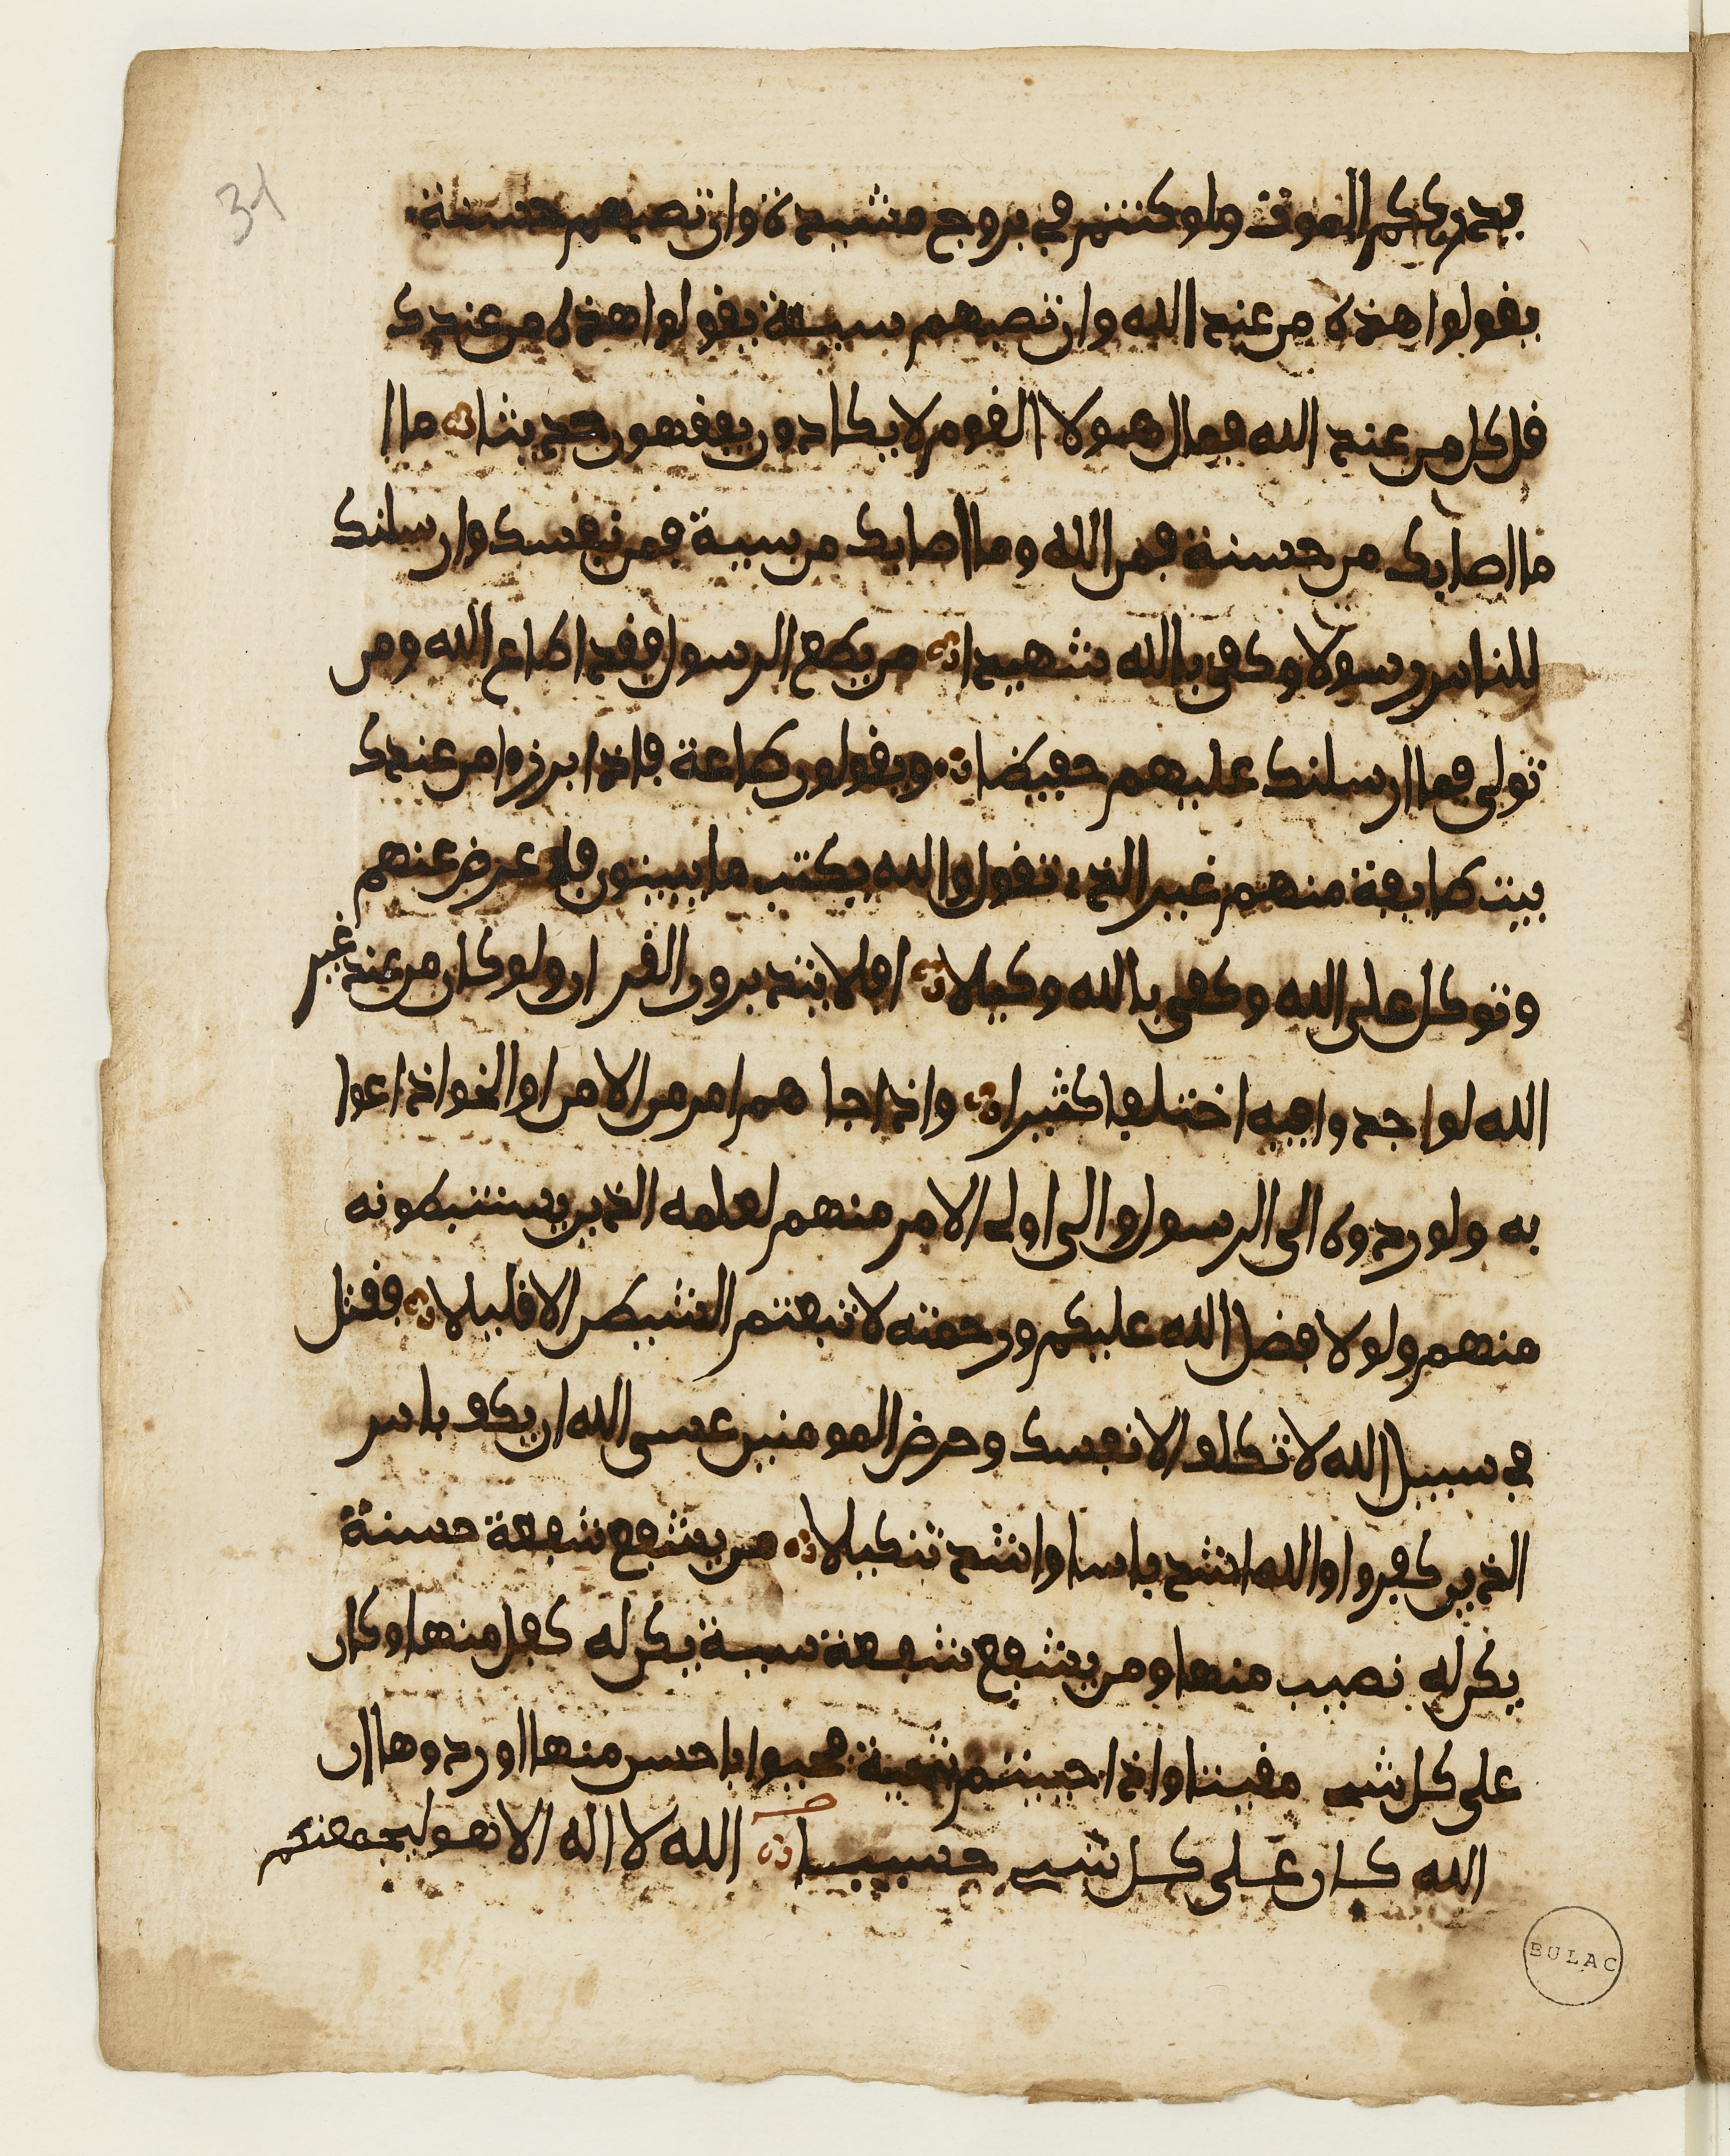 31
يدرككم الموت ولو كنتم في بروج مشيدة وان تصبهم حسنة
يقولوا هذه من عند الله وان تصبهم سيية يقولوا هذه من عندك
قل كل من عند الله فمال هولا القوم لا يكادون يفقهون حديثا ما ا
ما اصابك من حسنة فمن الله وما اصابك من سيية فمن نفسك وارسلنك
للناس رسولا وكفى بالله شهيدا من يطع الرسول فقد اطاع الله ومن
تولى فما ارسلنك عليهم حفيظا ويقولون طاعة فاذا برزوا من عندك
بيت طايفة منهم غير الذي تقول والله يكتب ما يبيتون فاعرض عنهم
وتوكل على الله وكفى بالله وكيلا افلا يتدبرون القران ولو كان من عند غير
الله لوجدوا فيه اختلفا كثيرا واذا جا هم امر من الامن او الخوف اذاعوا
به ولو ردوه الى الرسول والى اولى الامر منهم لعلمه الذين يستنبطونه
منهم ولولا فضل الله عليكم ورحمته لاتبعتم الشيطن الا قليلا فقتل
في سبيل الله لا تكلف الا نفسك وحرض المومنين عسى الله ان يكف باس
الذين كفروا والله اشد باسا واشد تنكيلا من يشفع شفعة حسنة
يكن له نصيب منها ومن يشفع شفعة سيية يكن له كفل منها وكان
على كل شي مقيتا واذا حييتم بتحية فحيوا باحسن منها او ردوها ان
الله كان على كل شي حسيبا الله لا اله الا هو ليجمعنكم
BULAC